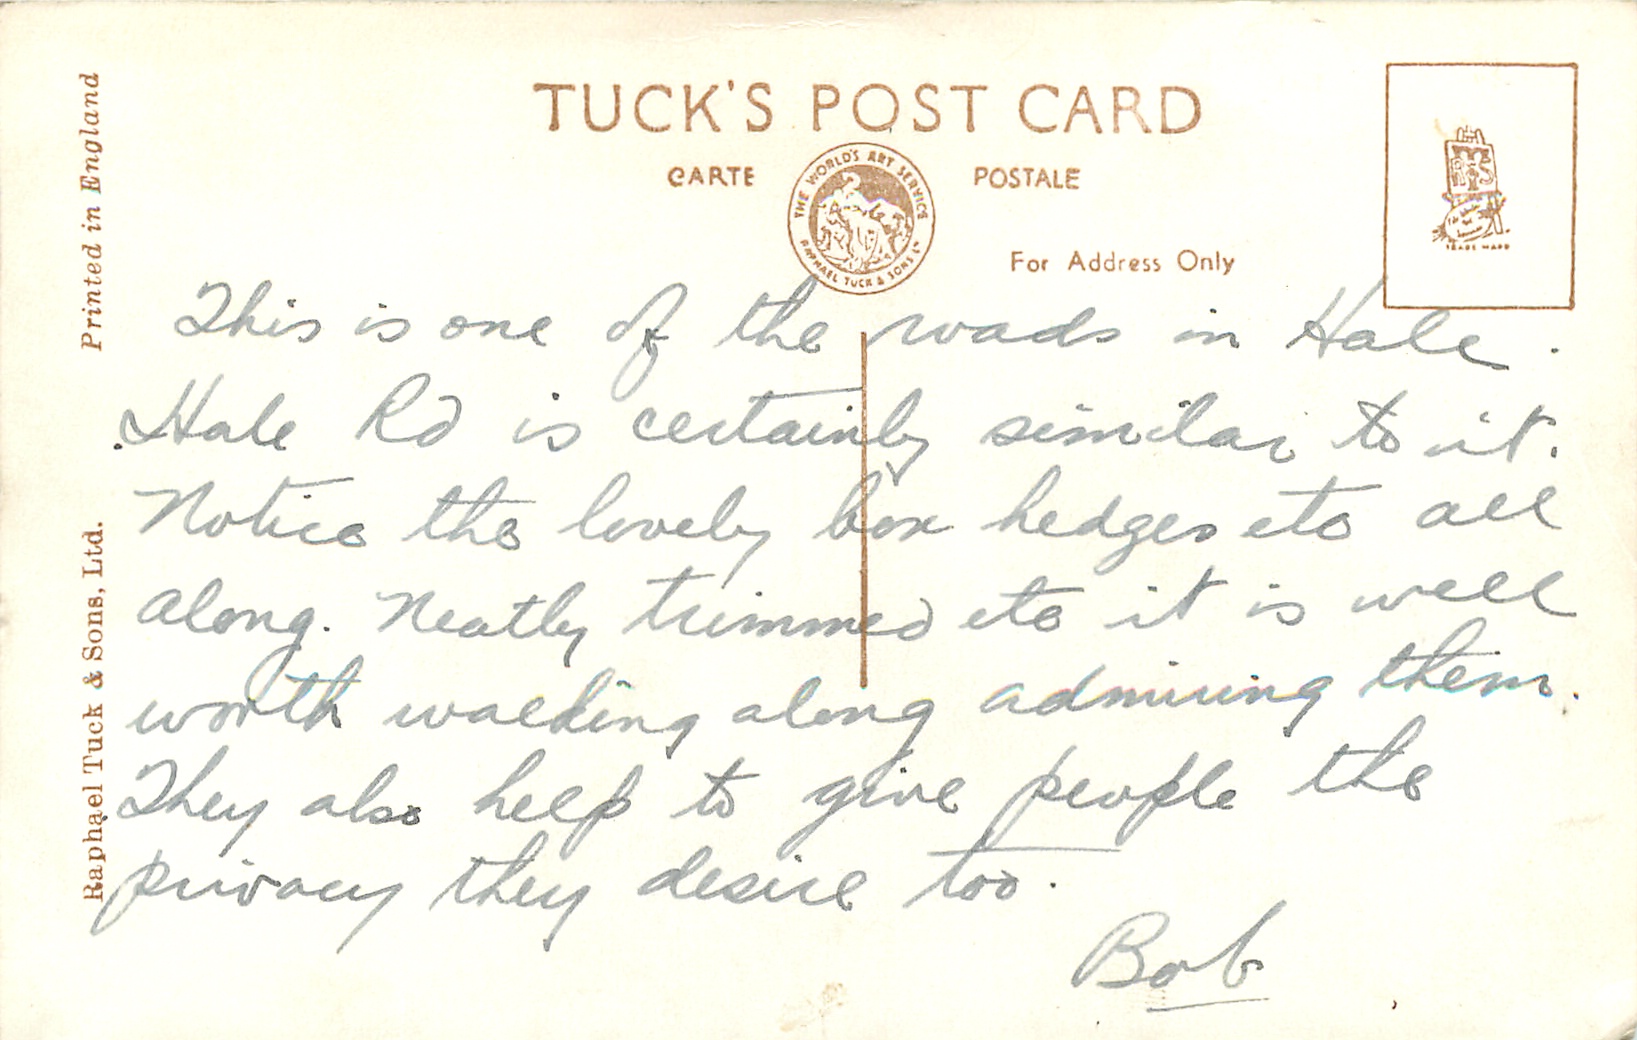 TUCK'S POST CARD
CARTE POSTALE
THE WORLD'S ART SERVICE
RAPHAEL TUCK & SONS LTD
For Address Only
TRADE MARK
Printed in England
Raphael Tuck & Sons, Ltd.
This is one of the roads in Hale.
Hale Rd is certainly similar to it.
Notice the lovely box hedges etc all
along. Neatly trimmed etc it is well
worth walking along admiring them.
They also help to give people the
privacy they desire too.
Bob